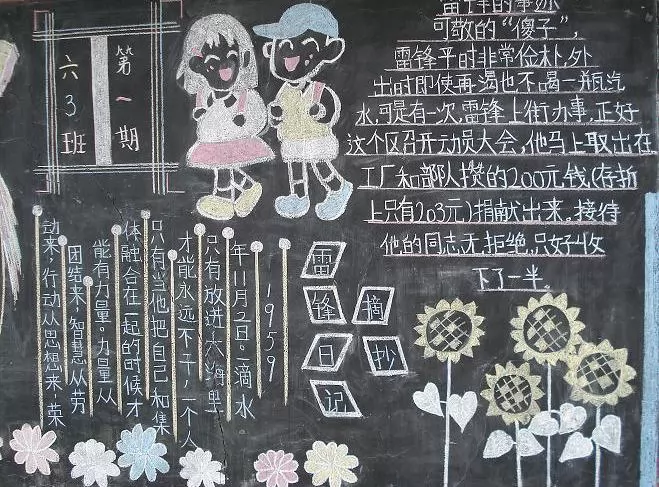 第一期
六3班
雷锋的事迹
可敬的“傻子”，
雷锋平时非常俭朴,外
出时即使再渴也不喝一瓶汽
水,可是有一次,雷锋上街办事,正好
这个区召开动员大会,他马上取出在
工厂和部队攒的200元钱(存折
上只有203元)捐献出来。接待
他的同志无拒绝,只好收
下了一半。
雷锋日记
摘抄
1959
年11月2日。一滴水
只有放进大海里
才能永远不干,一个人
只有当他把自己和集
体融合在一起的时候才
能有力量。力量从
团结来,智慧从劳
动来,行动从思想来,荣